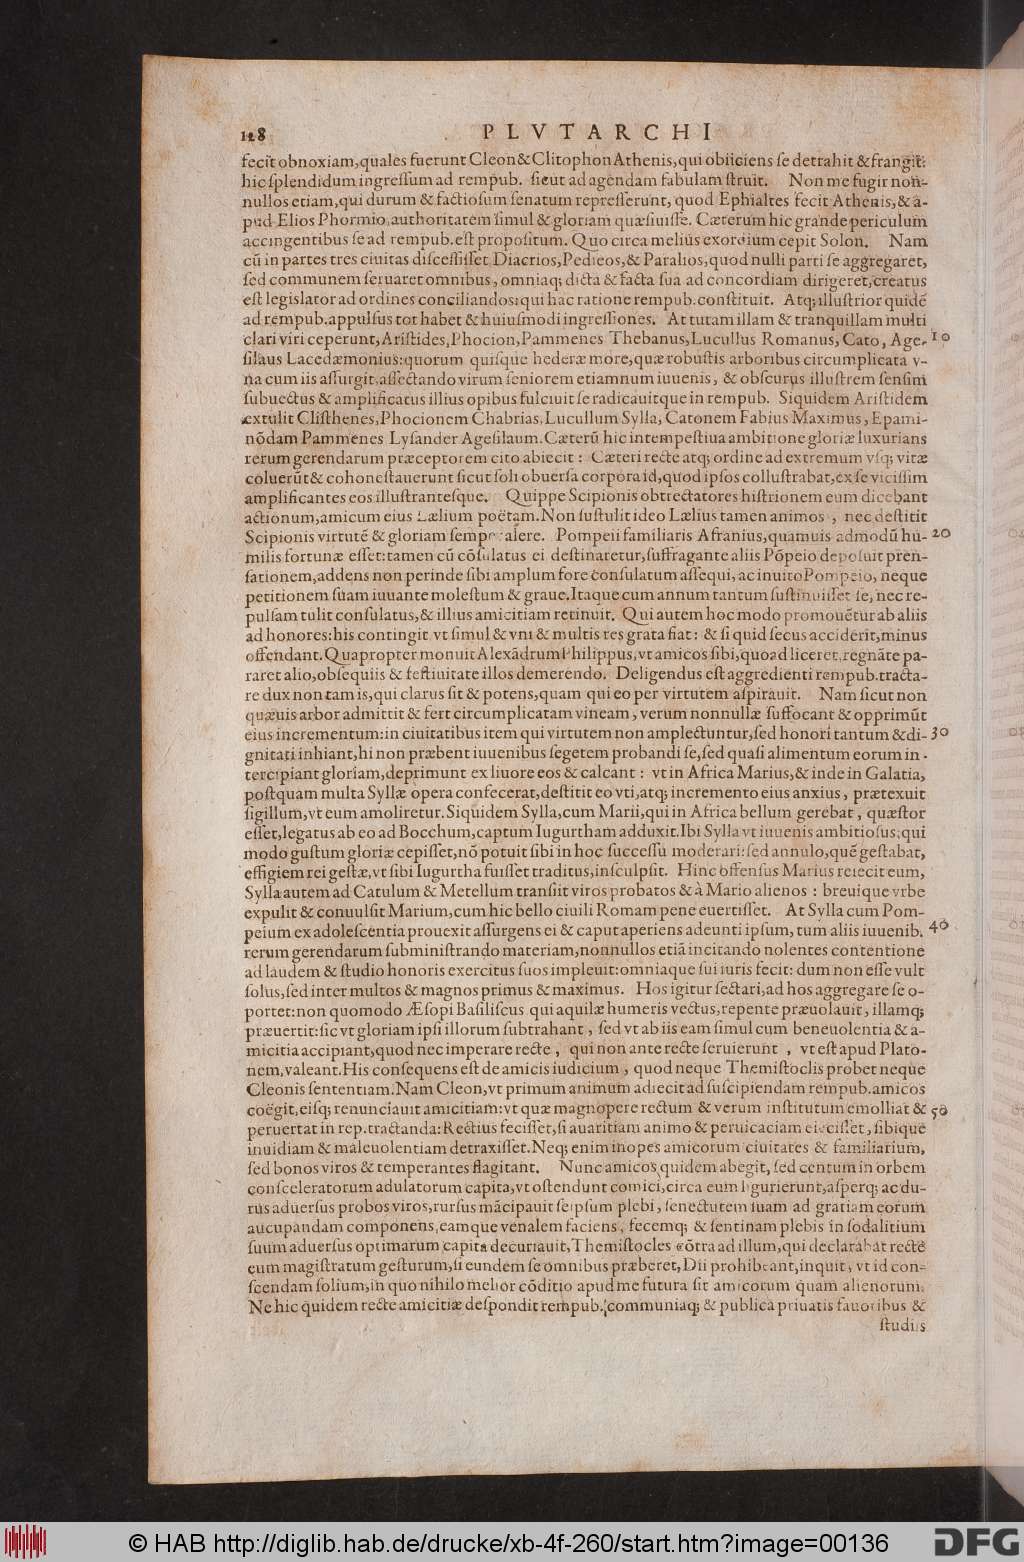 128 PLVTARCHI
fecit obnoxiam,quales fuerunt Cleon&Clitophon Athenis,qui obiiciens se detrahit &frangit:
hic splendidum ingressum ad rempub. sicut ad agendam fabulam struit. Non me fugit non-
nullos etiam,qui durum & factiosum senatum represserunt, quod Ephialtes fecit Athenis,& a-
pud Elios Phormio,authoritatem simul & gloriam quæsiuisse. Cæterum hic grande periculum
accingentibus se ad rempub.est propositum. Quo circa melius exordium cepit Solon. Nam
cū in partes tres ciuitas discessisset Diacrios,Pedieos,& Paralios,quod nulli parti se aggregaret,
sed communem seruaret omnibus, omniaq; dicta & facta sua ad concordiam dirigeret,creatus
est legislator ad ordines conciliandos:qui hac ratione rempub.constituit. Atq; illustrior quidē
ad rempub.appulsus tot habet & huiusmodi ingressiones. At tutam illam & tranquillam multi
clari viri ceperunt,Aristides,Phocion,Pammenes Thebanus,Lucullus Romanus, Cato, Age- 10
silaus Lacedæmonius:quorum quisque hederæ more,quæ robustis arboribus circumplicata v-
na cum iis assurgit,affectando virum seniorem etiamnum iuuenis, & obscurus illustrem sensim
subuectus & amplificatus illius opibus fulciuit se radicauitque in rempub. Siquidem Aristidem
extulit Clisthenes,Phocionem Chabrias,Lucullum Sylla, Catonem Fabius Maximus, Epami-
nōdam Pammenes Lysander Agesilaum.Cæterū hic intempestiua ambitione gloriæ luxurians
rerum gerendarum præceptorem cito abiecit: Cæteri recte atq; ordine ad extremum vsq; vitæ
coluerūt & cohonestauerunt sicut soli obuersa corpora id,quod ipsos collustrabat,ex se vicissim
amplificantes eos illustrantesque. Quippe Scipionis obtrectatores histrionem eum dicebant
actionum,amicum eius Lælium poëtam.Non sustulit ideo Lælius tamen animos, nec destitit
Scipionis virtutē & gloriam semper alere. Pompeii familiaris Afranius,quamuis admodū hu- 20
milis fortunæ esset:tamen cū cōsulatus ei destinaretur,suffragante aliis Pōpeio deposuit pren-
sationem,addens non perinde sibi amplum fore consulatum assequi, ac inuito Pompeio, neque
petitionem suam iuuante molestum & graue.Itaque cum annum tantum sustinuisset se, nec re-
pulsam tulit consulatus,& illius amicitiam retinuit. Qui autem hoc modo promouētur ab aliis
ad honores:his contingit vt simul & vni & multis res grata fiat: & si quid secus acciderit,minus
offendant.Quapropter monuit Alexādrum Philippus,vt amicos sibi,quoad liceret,regnāte pa-
raret alio,obsequiis & festiuitate illos demerendo. Deligendus est aggredienti rempub.tracta-
re dux non tam is,qui clarus sit & potens,quam qui eo per virtutem aspirauit. Nam sicut non
quæuis arbor admittit & fert circumplicatam vineam, verum nonnullæ suffocant & opprimūt
eius incrementum:in ciuitatibus item qui virtutem non amplectuntur,sed honori tantum & di- 30
gnitati inhiant,hi non præbent iuuenibus segetem probandi se,sed quasi alimentum eorum in-
tercipiant gloriam,deprimunt ex liuore eos & calcant: vt in Africa Marius,& inde in Galatia,
postquam multa Syllæ opera confecerat,destitit eo vti,atq; incremento eius anxius, prætexuit
sigillum,vt eum amoliretur.Siquidem Sylla,cum Marii,qui in Africa bellum gerebat, quæstor
esset,legatus ab eo ad Bocchum,captum Iugurtham adduxit.Ibi Sylla vt iuuenis ambitiosus,qui
modo gustum gloriæ cepisset,nō potuit sibi in hoc successu moderari:sed annulo,quē gestabat,
effigiem rei gestæ,vt sibi Iugurtha fuisset traditus,insculpsit. Hinc offensus Marius reiecit eum,
Sylla autem ad Catulum & Metellum transiit viros probatos & à Mario alienos: breuique vrbe
expulit & conuulsit Marium,cum hic bello ciuili Romam pene euertisset. At Sylla cum Pom-
peium ex adolescentia prouexit assurgens ei & caput aperiens adeunti ipsum, tum aliis iuuenib. 40
rerum gerendarum subministrando materiam,nonnullos etiā incitando nolentes contentione
ad laudem & studio honoris exercitus suos impleuit:omniaque sui iuris fecit: dum non esse vult
solus,sed inter multos & magnos primus & maximus. Hos igitur sectari,ad hos aggregare se o-
portet:non quomodo Æsopi Basiliscus qui aquilæ humeris vectus,repente præuolauit, illamq;
præuertit:sic vt gloriam ipsi illorum subtrahant, sed vt ab iis eam simul cum beneuolentia & a-
micitia accipiant,quod nec imperare recte, qui non ante recte seruierunt, vt est apud Plato-
nem,valeant.His consequens est de amicis iudicium, quod neque Themistoclis probet neque
Cleonis sententiam.Nam Cleon,vt primum animum adiecit ad suscipiendam rempub.amicos
coëgit,eisq; renunciauit amicitiam:vt quæ magnopere rectum & verum institutum emolliat & 50
peruertat in rep.tractanda:Rectius fecisset,si auaritiam animo & peruicaciam eiecisset, sibique
inuidiam & maleuolentiam detraxisset.Neq; enim inopes amicorum ciuitates & familiarium,
sed bonos viros & temperantes flagitant. Nunc amicos quidem abegit, sed centum in orbem
consceleratorum adulatorum capita,vt ostendunt comici,circa eum ligurierunt,asperq; ac du-
rus aduersus probos viros,rursus mācipauit seipsum plebi, senectutem suam ad gratiam eorum
aucupandam componens,eamque venalem faciens, fecemq; & sentinam plebis in sodalitium
suum aduersus optimarum capita decuriauit,Themistocles cōtra ad illum,qui declarabat recte
eum magistratum gesturum,si eundem se omnibus præberet,Dii prohibeant,inquit, vt id con-
scendam solium,in quo nihilo melior cōditio apud me futura sit amicorum quam alienorum.
Ne hic quidem recte amicitiæ despondit rempub. communiaq; & publica priuatis fauoribus &
studiis
© HAB http://diglib.hab.de/drucke/xb-4f-260/start.htm?image=00136 DFG